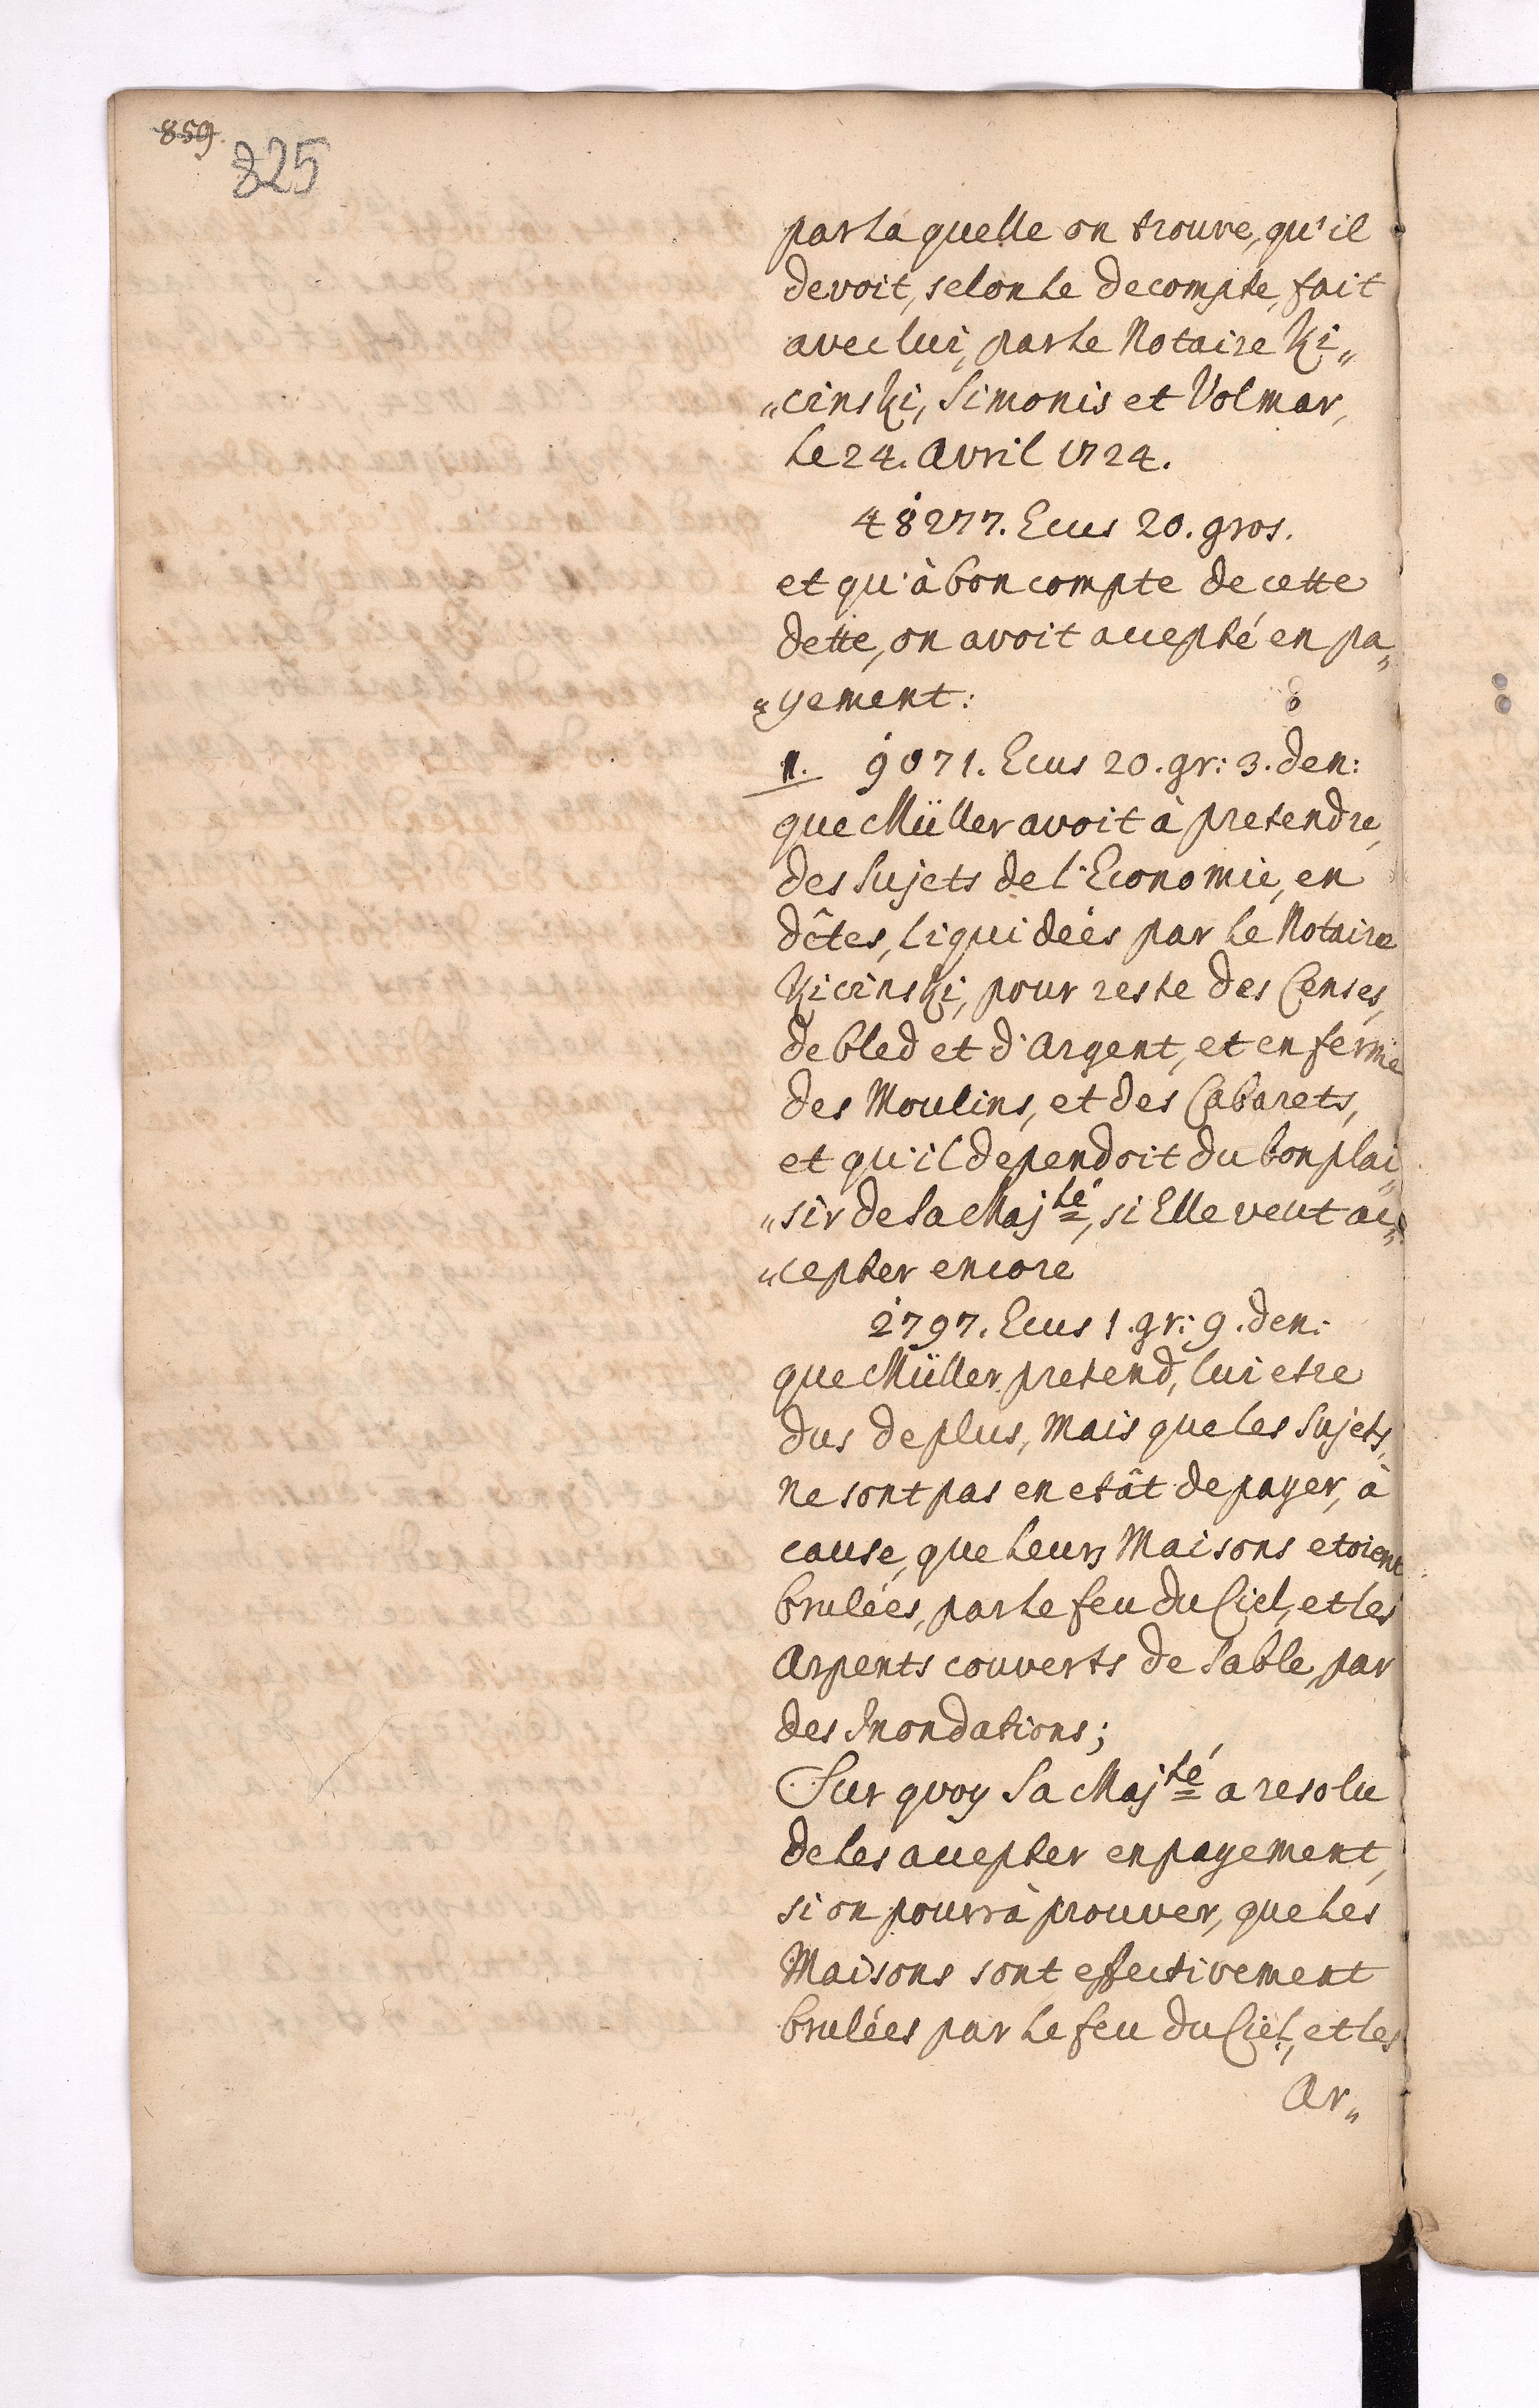 859.
825
par la quelle on trouve, qu'il
devoit, selon le decompte, fait
avec lui, par le Notaire Ki„
„cinski, Simonis et Volmar,
le 24. Avril 1724.
48277. Ecus 20. gros.
et qu'à bon compte de cette
dette, on avoit accepté en pa„
„yement:
1. 9071. Ecus 20. gr: 3. den:
que Müller avoit à pretendre,
des Sujets de l'Economie, en
dêtes, liquideés par le Notaire
Kicinski, pour reste des Censes,
de bled et d'Argent, et en ferme
des Moulins, et des Cabarets,
et qu'il dependoit du bon plai„
„sir de Sa Maj.té, si Elle veut ac„
„cepter encore
2797. Ecus 1. gr: 9. den:
que Müller pretend, lui etre
dus de plus, Mais que les Sujets,
ne sont pas en etât de payer, à
cause, que leurs Maisons etoient
bruleés, par le feu du Ciel, et les
Arpents couverts de Sable, par
des Inondations;
Sur quoy Sa Maj.té a resolu
de les accepter en payement,
si on pourrà prouver, que les
Maisons sont effectivement
bruleés par le feu du Ciel, et les
Ar„